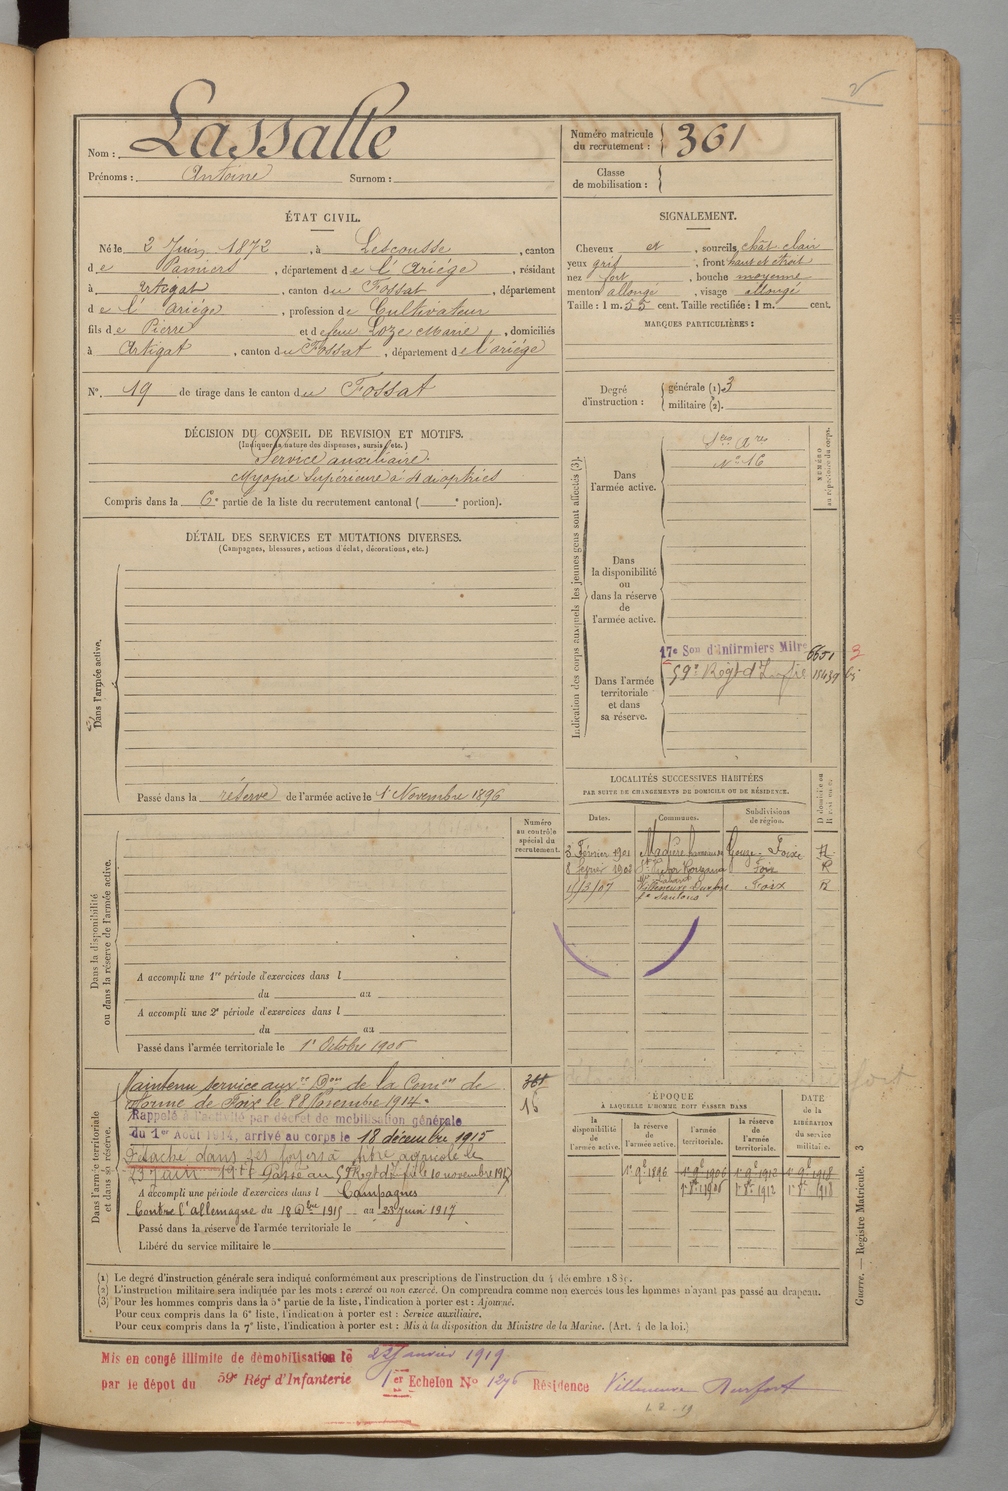 Nom : Lassalle
Prénoms : Antoine Surnom :
Numéro matricule du recrutement : 361
Classe de mobilisation :
ÉTAT CIVIL.
Né le 2 Juin 1872, à Lescousse, canton
de Pamiers, département de l'Ariége, résidant
à Artigat, canton du Fossat, département
de l'Ariége, profession de Cultivateur
fils de Pierre et de feue Loze Marie, domiciliés
à Artigat, canton du Fossat, département de l'ariége
N° 19 de tirage dans le canton du Fossat
SIGNALEMENT.
Cheveux et, sourcils chât clair
yeux gris, front haut et étroit
nez fort, bouche moyenne
menton allongé, visage allongé
Taille : 1 m. 55 cent. Taille rectifiée : 1 m. cent.
MARQUES PARTICULIÈRES :
Degré d'instruction : générale (1) 3
militaire (2).
DÉCISION DU CONSEIL DE REVISION ET MOTIFS.
(Indiquer la nature des dispenses, sursis, etc.)
Service auxiliaire.
Myopie Supérieure à 4 dioptries
Compris dans la 6e partie de la liste du recrutement cantonal ( e portion).
DÉTAIL DES SERVICES ET MUTATIONS DIVERSES.
(Campagnes, blessures, actions d'éclat, décorations, etc.)
Dans l'armée active.
Passé dans la réserve de l'armée active le 1 Novembre 1896
Indication des corps auxquels les jeunes gens sont affectés (3).
NUMÉRO au répertoire du corps.
Dans l'armée active.
N° 16
Dans la disponibilité ou dans la réserve de l'armée active.
Dans l'armée territoriale et dans sa réserve.
17e Son d'Infirmiers Milres 6651 3
59e Régt d'Infrie 15437
LOCALITÉS SUCCESSIVES HABITÉES
PAR SUITE DE CHANGEMENTS DE DOMICILE OU DE RÉSIDENCE.
Dates. Communes. Subdivisions de région.
3 Février 1901 Foix
8 février 1902 Foix R
4/3/07 Villeneuve Durfort Foix R
Dans la disponibilité ou dans la réserve de l'armée active.
Numéro au contrôle spécial du recrutement.
A accompli une 1re période d'exercices dans l
du au
A accompli une 2e période d'exercices dans l
du au
Passé dans l'armée territoriale le 1r Octobre 1906
Dans l'armée territoriale et dans sa réserve.
Maintenu service auxre Don de la Comon de
réforme de Foix le 28 Novembre 1914.
361
16
Rappelé à l'activité par décret de mobilisation générale
du 1er Août 1914, arrivé au corps le 18 décembre 1915
Détaché dans ses foyers à titre agricole le
23 Juin 1917 Passé au 59 Régt d'Infie le 10 novembre 1917
A accompli une période d'exercices dans l Campagnes
Contre l'allemagne du 18 Dbre 1915 au 23 Juin 1917
Passé dans la réserve de l'armée territoriale le
Libéré du service militaire le
ÉPOQUE
À LAQUELLE L'HOMME DOIT PASSER DANS
la disponibilité de l'armée active.
la réserve de l'armée active.
l'armée territoriale.
la réserve de l'armée territoriale.
DATE de la LIBÉRATION du service militaire.
1r 9e 1896 1r 9e 1906 1r 9e 1912 1r 9e 1918
1r 8e 1906 1r 8e 1912 1r 8e 1918
(1) Le degré d'instruction générale sera indiqué conformément aux prescriptions de l'instruction du 4 décembre
(2) L'instruction militaire sera indiquée par les mots : exercé ou non exercé. On comprendra comme non exercés tous les hommes n'ayant pas passé au drapeau.
(3) Pour les hommes compris dans la 5e partie de la liste, l'indication à porter est : Ajourné.
Pour ceux compris dans la 6e liste, l'indication à porter est : Service auxiliaire.
Pour ceux compris dans la 7e liste, l'indication à porter est : Mis à la disposition du Ministre de la Marine. (Art. 4 de la loi.)
Guerre. — Registre Matricule. 3
Mis en congé illimité de démobilisation le 22 Janvier 1919
par le dépot du 59e Régt d'Infanterie 1er Echelon N° 1276 Résidence Villeneuve Durfort